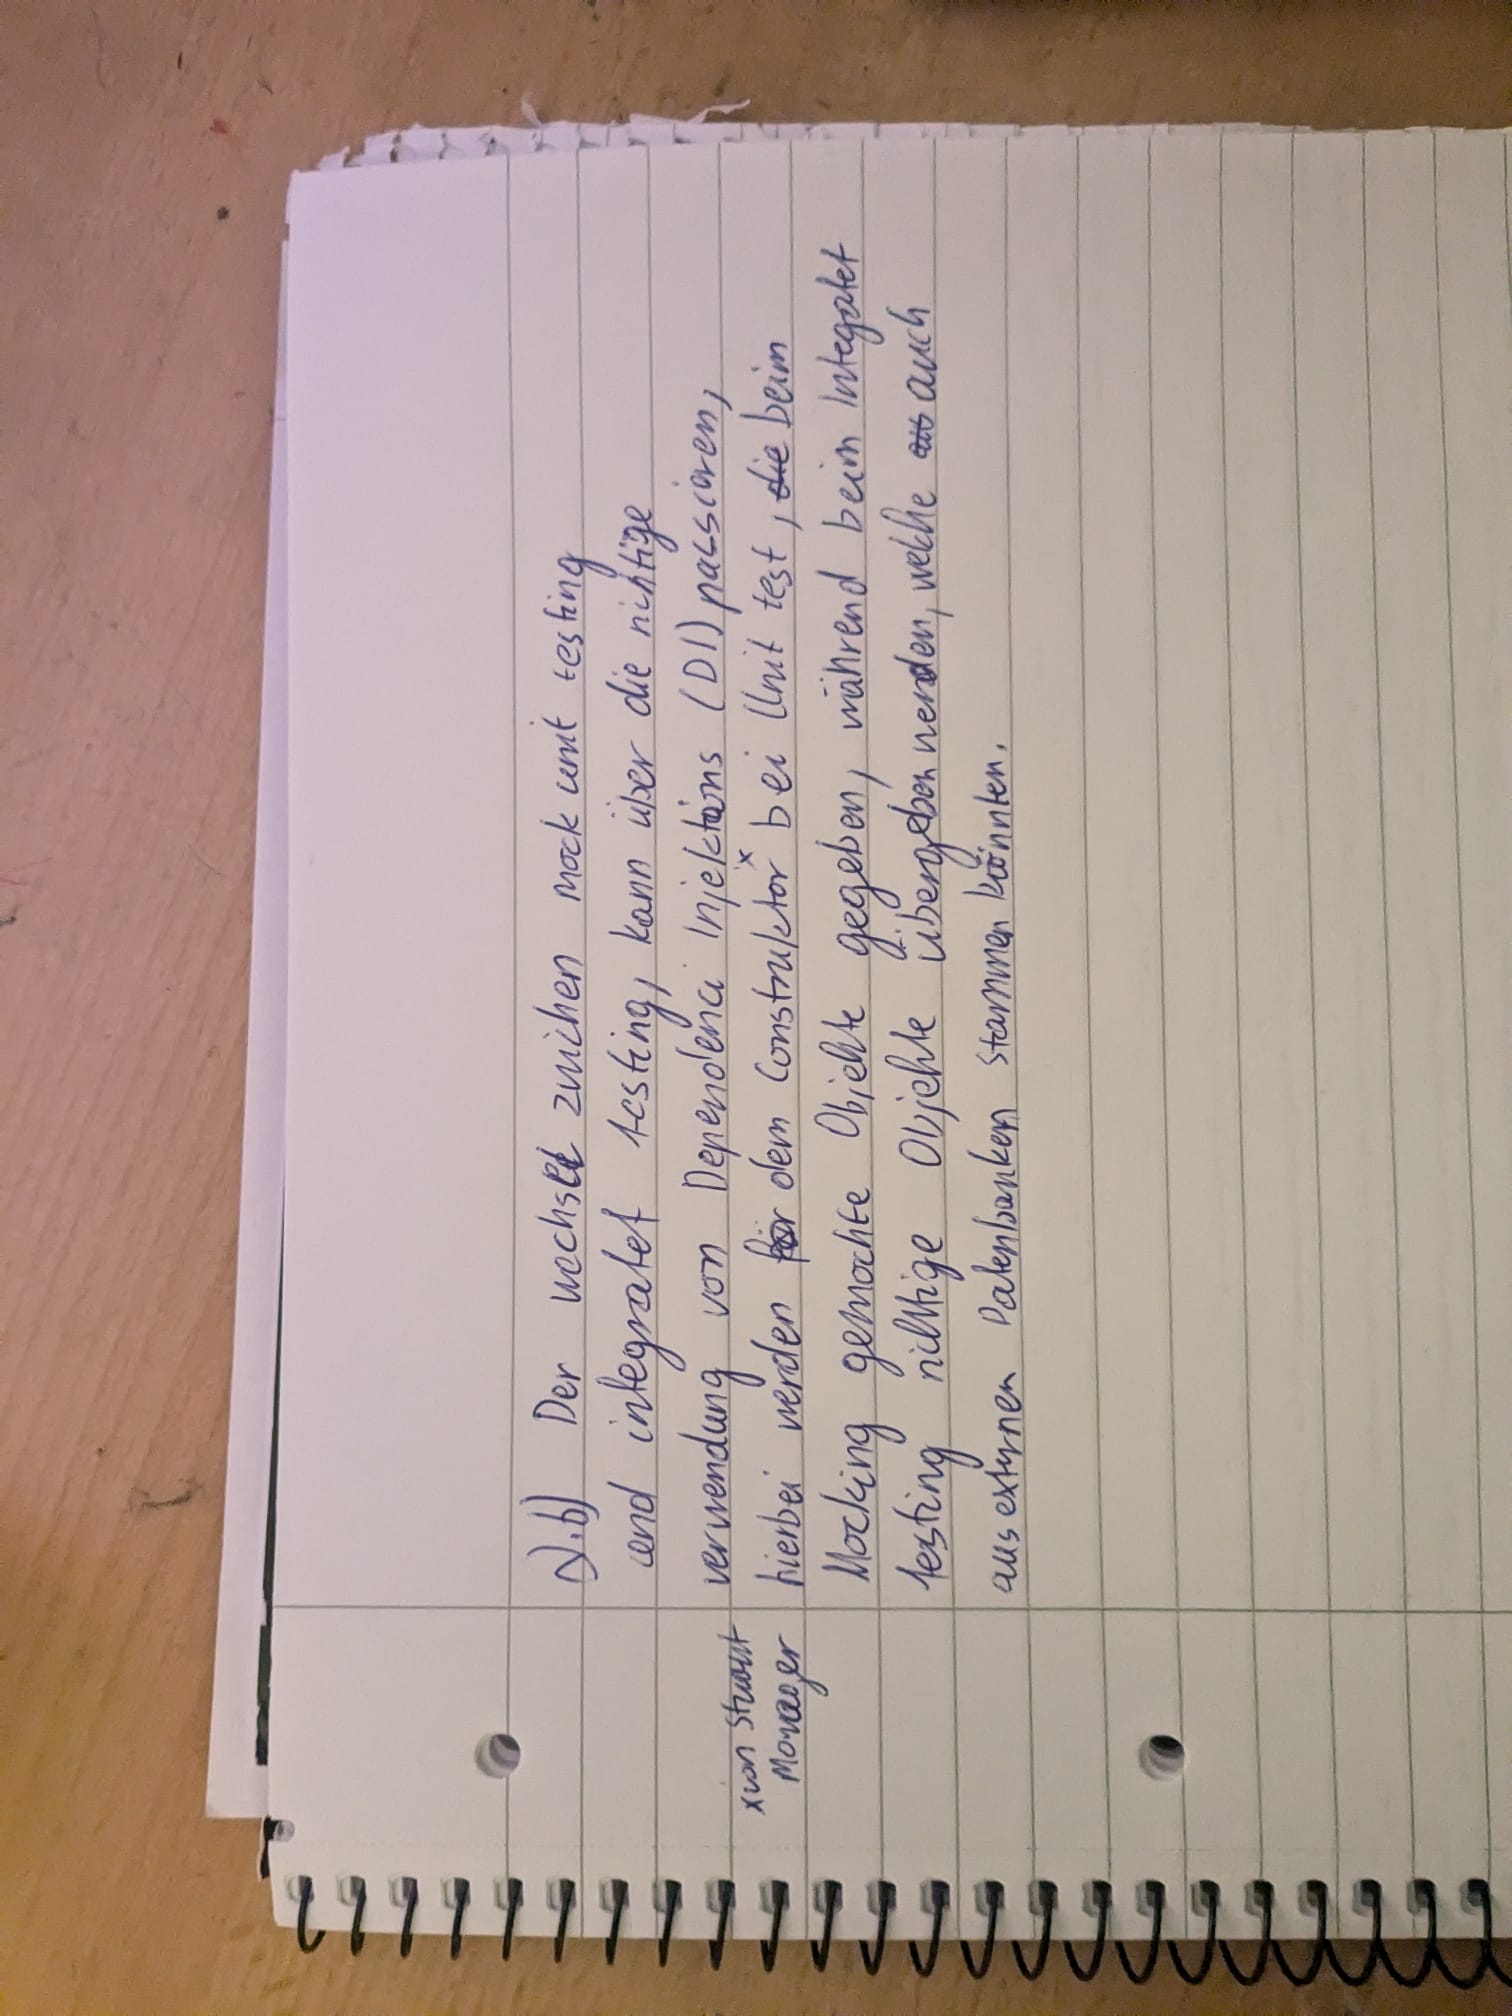 2.b) Der wechsel zwichen mock unit testing
und integratet testing, kann über die richtige
verwendung von Dependenci Injektions (DI) passieren,
hierbei werden für dem Construktor x bei Unit test, die beim
x von
Manager
Mocking gemachte Objekte gegeben, während beim Integratet
testing richtige Objekte übergeben werden, welche aus auch
aus externen Datenbanken stammen könnten.